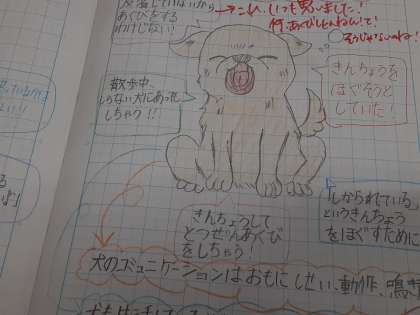 反省していないから
あくびをする
わけじゃない!
→これ、いつも思いました!
何あくびしとんねん!て!
そうじゃないのね!
きんちょうを
ほぐそうと
していた!
散歩中、
しらない犬にあった
しちゃう!!
きんちょうして
とつぜんあくび
をしちゃう!
「しかられている」
というきんちょう
をほぐすために
犬のコミュニケーションはおもにしせい、動作、鳴き